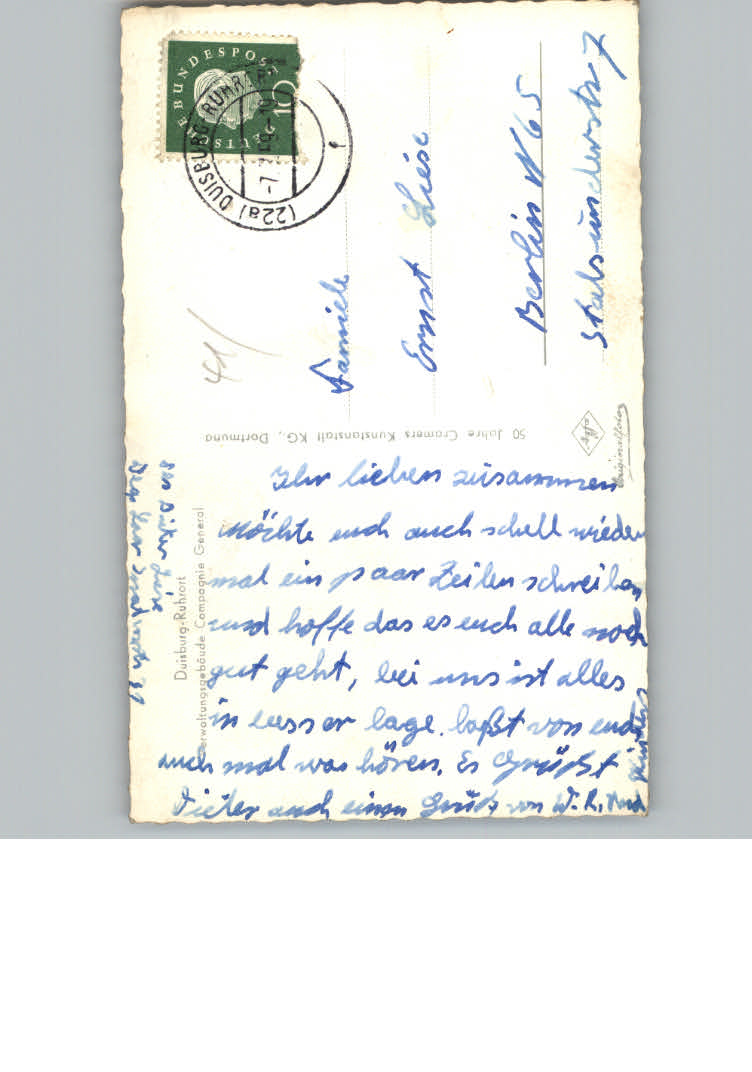 DEUTSCHE BUNDESPOST
10
(22a) DUISBURG-RUHRORT
-7.
Familie
Ernst Liese
Berlin N 65
Stralsunderstr 7
41/
50 Jahre Cramers Kunstanstalt KG., Dortmund
Agfa
Originalfoto
Duisburg-Ruhrort
Verwaltungsgebäude Compagnie General
Ihr lieben zusammen
Möchte euch auch schell wieder
mal ein paar Zeilen schreiben
und hoffe das es euch alle noch
gut geht, bei uns ist alles
in besser lage. laßt von euch
auch mal was hören. Es Grüßt
Dieter auch einen Gruß von W. R. und
Kinder